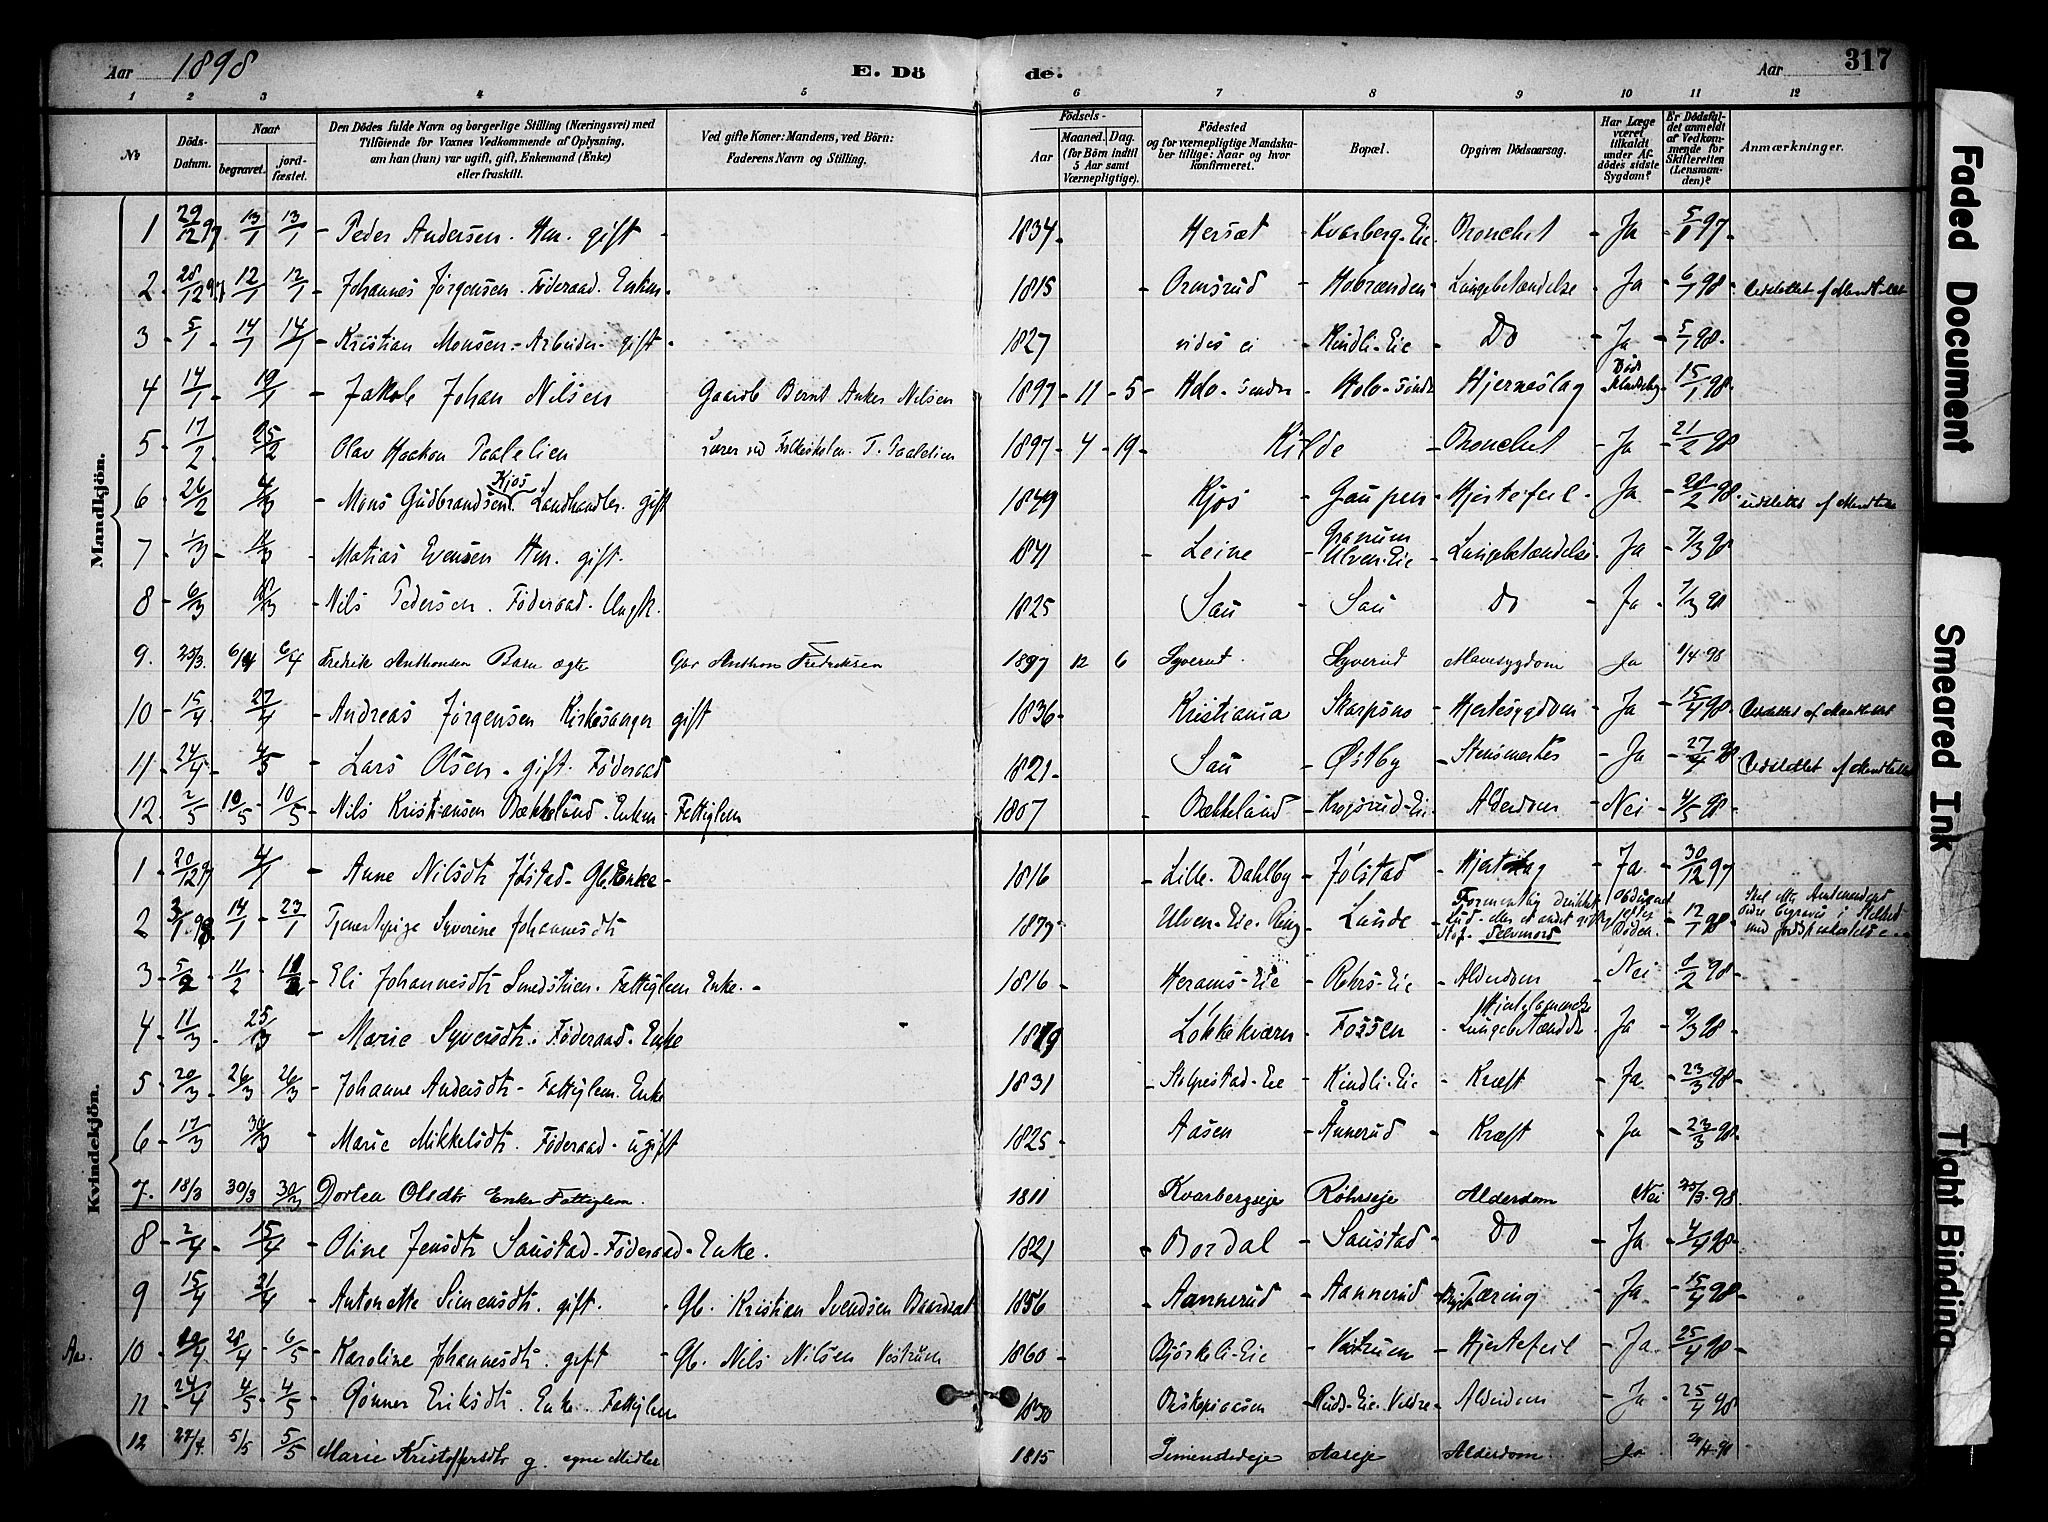 Aar 1898
E. Dö de.
Aar
317
1 2 3 4 5 6 7 8 9 10 11 12
№
Döds-Datum.
Naar begravet. jord-fæstet.
Den Dödes fulde Navn og borgerlige Stilling (Næringsvei) med
Tilföiende for Voxnes Vedkommende af Oplysning,
om han (hun) var ugift, gift, Enkemand (Enke)
eller fraskilt.
Ved gifte Koner: Mandens, ved Börn:
Faderens Navn og Stilling.
Födsels-
Aar
Maaned. Dag.
(for Börn indtil 5 Aar samt Værnepligtige).
Födested
og for værnepligtige Mandska-
ber tillige: Naar og hvor
konfirmeret.
Bopæl.
Opgiven Dödsaarsag.
Har Læge været tilkaldt under Af-dödes sidste Sygdom?
Er Dödsfal-det anmeldt af Vedkom-mende for Skifteretten (Lensman-den)?
Anmærkninger.
Mandkjön.
1 29/12 97 13/1 13/1 Peder Andersen. Hm. gift 1834 Hersæt Kvarberg-Eie Bronchit Ja 5/1 97
2 28/12 97 12/1 12/1 Johannes Jørgensen. Føderaad. Enkem 1815 Ormsrud Lungebetændelse Ja 6/1 98 Udslettet af Mandtallet
3 5/1 14/1 14/1 Kristian Monsen. Arbeider. gift 1827 vides ei Kindli-Eie Do Ja 5/1 98
4 14/1 19/1 Jakob Johan Nilsen Gaardb Bernt Anker Nilsen 1897 11 5 Holo-søndre Holo-søndre Hjerneslag 15/1 98
5 17/2 25/2 Olav Haakon Paalelien Lærer ved Folkeskolen. T. Paalelien 1897 4 19 Kilde Bronchit Ja 21/2 98
6 26/2 4/3 Mons Gudbrandsen Kjos Landhandler gift 1849 Kjos Gaupen Hjertefeil Ja 28/2 98 udslettet af Mandtallet
7 1/3 11/3 Matias Evensen Hm. gift. 1841 Leine Granum Ulven-Eie Lungebetændelse Ja 7/3 98
8 6/3 18/3 Nils Pedersen. Føderaad. Ungk. 1825 Sau Sau Do Ja 7/3 98
9. 25/3. 6/4 6/4 Fredrik Anthonsen Barn ægte Gbr Anthon Fredriksen 1897 12 6 Syverud. Syverud Mavesygdom Ja 1/4 98
10 15/4 27/4 Andreas Jørgensen Kirkesanger gift 1836 Kristiania Skarpsno Hjertesygdom Ja 15/4 98 Udslettet af Mandtallet
11 24/4 4/5 Lars Olsen. gift. Føderaad 1821 Sau Østby Stensmerter Ja 27/4 98 Udslettet af Mandtallet
12. 2/5 10/5 10/5 Nils Kristiansen Bækkelund. Enkem Fattiglem 1807 Bækkelund Alderdom Nei 4/5 98
Kvindekjön.
1 20/12 97 4/1 Anne Nilsdtr Jølstad. Gb. Enke 1816 Lille-Dahlby Jølstad Hjerteslag Ja 30/12 97
2 3/1 98 14/1 23/1 Tjenestepige Syverine Johannesdtr 1879 Ulven-Eie. Ring Lunde Formentlig drukket Lud eller et andet giftig Stof. Selvmord Obduceret efter Døden. 12/1 98
3 5/2 11/2 11/2 Eli Johannesdtr Smedstuen. Fattiglem Enke. 1816 Herams-Eie Rørs-Eie Alderdom Nei 8/2 98
4 11/3 25/3 Marie Syversdtr. Føderaad. Enke 1819 Løkkekværn Fossen Lungebetændelse Ja 98
5 20/3 26/3 26/3 Johanne Andersdtr. Fattiglem. Enke 1831 Stolpestad-Eie Kindli-Eie Kræft Ja 23/3 98
6 17/3 30/3 Marie Mikkelsdtr. Føderaad. ugift 1825 Aasen Ånnerud Kræft Ja 23/3 98
7. 18/3 30/3 30/3 Dortea Olsdtr Enke Fattiglem 1811 Kvarbergseje Röhrseje Alderdom Nei 25/3 98
8 2/4 15/4 Oline Jensdtr Saustad. Føderaad. Enke. 1821 Bordal Saustad Do Ja 4/4 98
9 15/4 21/4 Antonette Simensdtr. gift. Gb. Kristian Svendsen Baardset 1856 Aannerud Aannerud Bryst Tæring Ja 15/4 98
10 19/4 28/4 6/5 Karoline Johannesdtr. gift Gb. Nils Nilsen Vestrum 1860 Bjørkeli-Eie Vestrum Hjertefeil Ja 25/4 98
11 24/4 4/5 4/5 Gønner Eriksdtr. Enke. Fattiglem 1830 Bispeaasen Ruds-Eie. Veldre Alderdom Ja 25/4 98
12 27/4. 5/5 5/5 Marie Kristoffersdtr g. egne Midler 1815 Simenstadeje Aaseje Alderdom Ja
Faded Document
Smeared Ink
Tight Binding